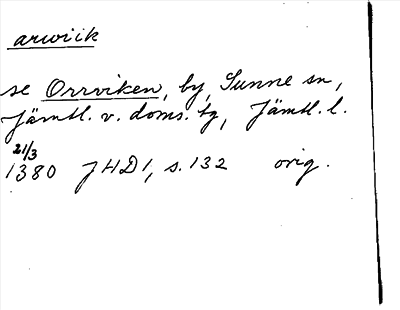 arwiik
se Orrviken, by, Sunne sn,
Jämtl. v. doms. tg, Jämtl. l.
21/3
1380 JHD1, s. 132 orig.